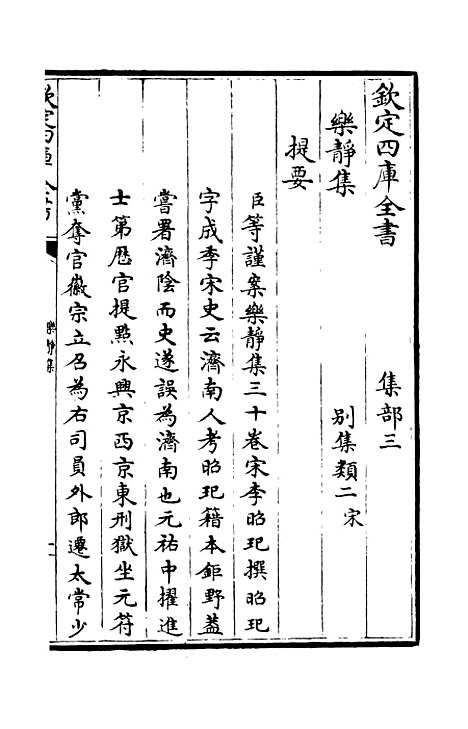 欽定四庫全書　集部三
樂静集　别集類二宋
提要
臣等謹案樂静集三十卷宋李昭玘撰昭玘
字成季宋史云濟南人考昭玘籍本鉅野葢
嘗署濟陰而史遂誤為濟南也元祐中擢進
士第歴官提㸃永興京西京東刑獄坐元符
黨奪官徽宗立召為右司員外郎遷太常少
樂静集